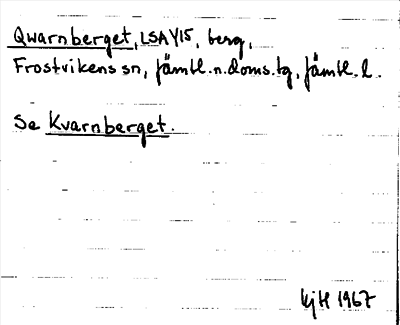 Qwarnberget, LSA Y15, berg,
Frostvikens sn, Jämtl. n. doms.tg, Jämtl. l.
Se Kvarnberget.
KjH 1967